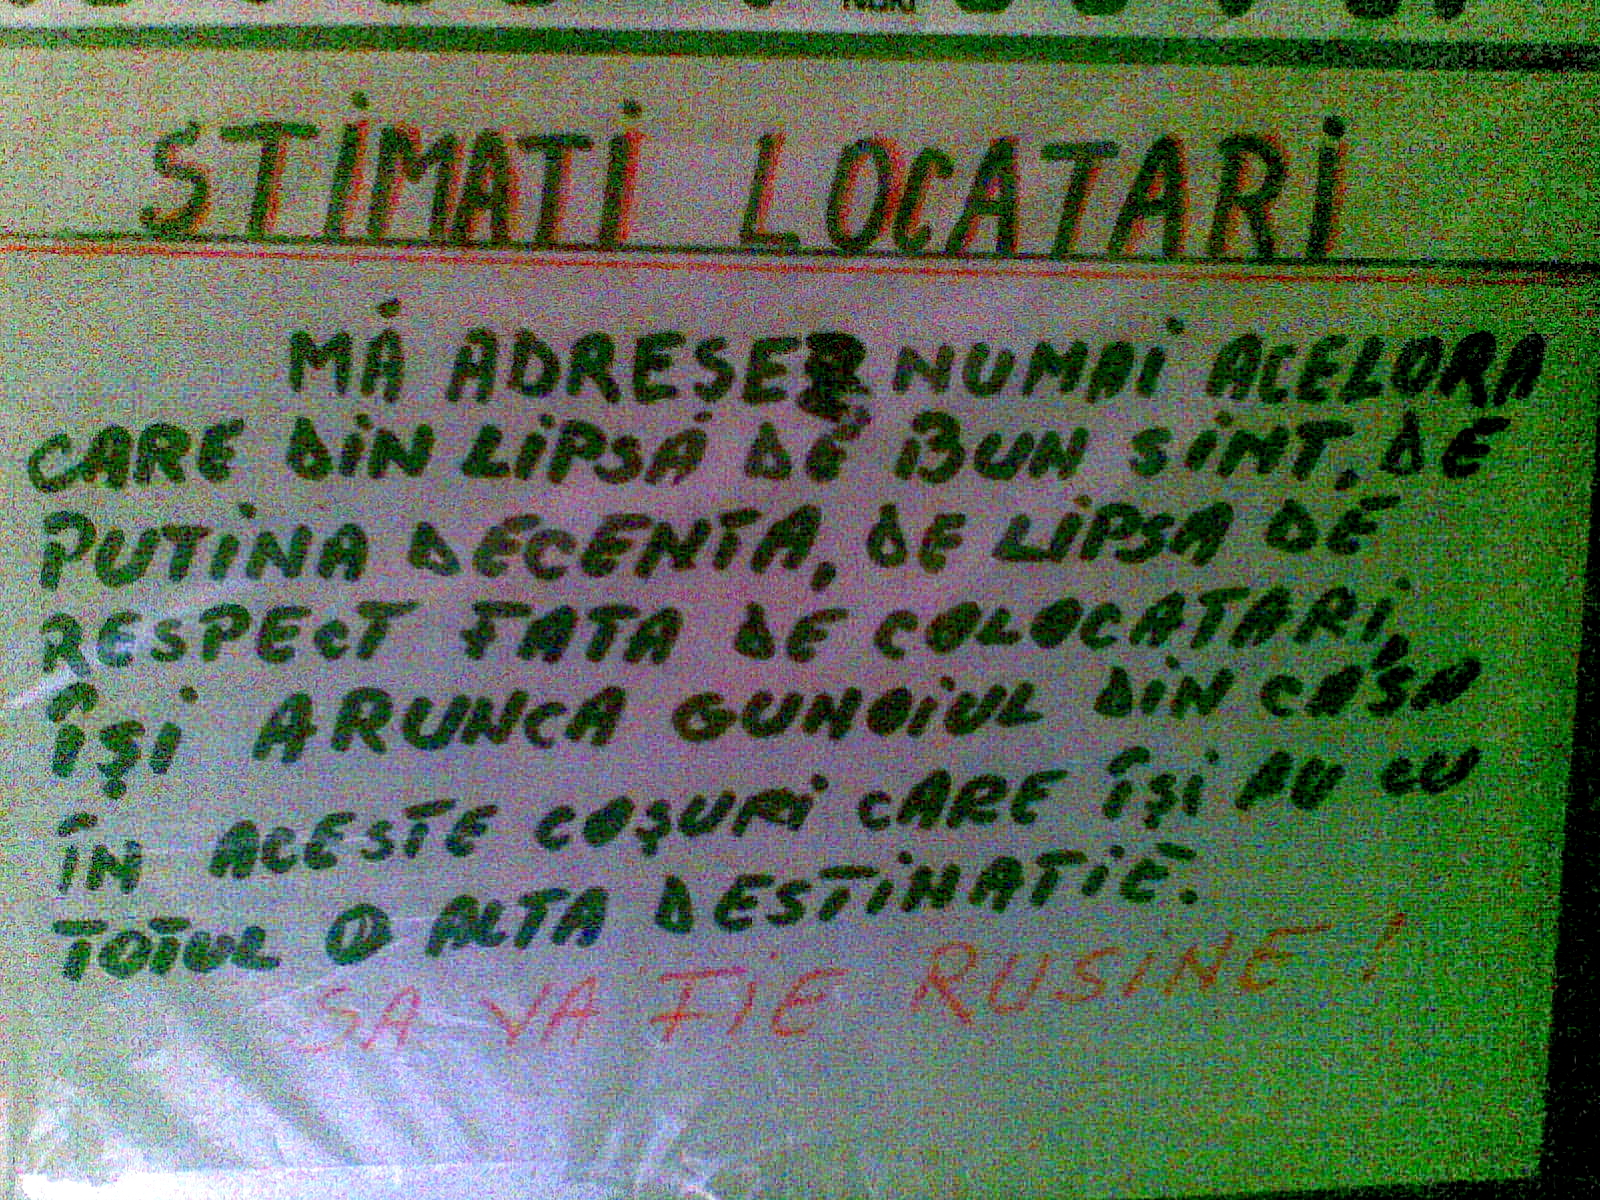 STIMATI LOCATARI
MĂ ADRESEZ NUMAI ACELORA
CARE DIN LIPSĂ DE BUN SIMT, DE
PUTINA DECENTA, DE LIPSA DE
RESPECT FATA DE COLOCATARI,
ÎŞI ARUNCA GUNOIUL DIN CASA
ÎN ACESTE COŞURI CARE ÎŞI AU CU
TOTUL O ALTA DESTINATIE.
SA VA FIE RUSINE!